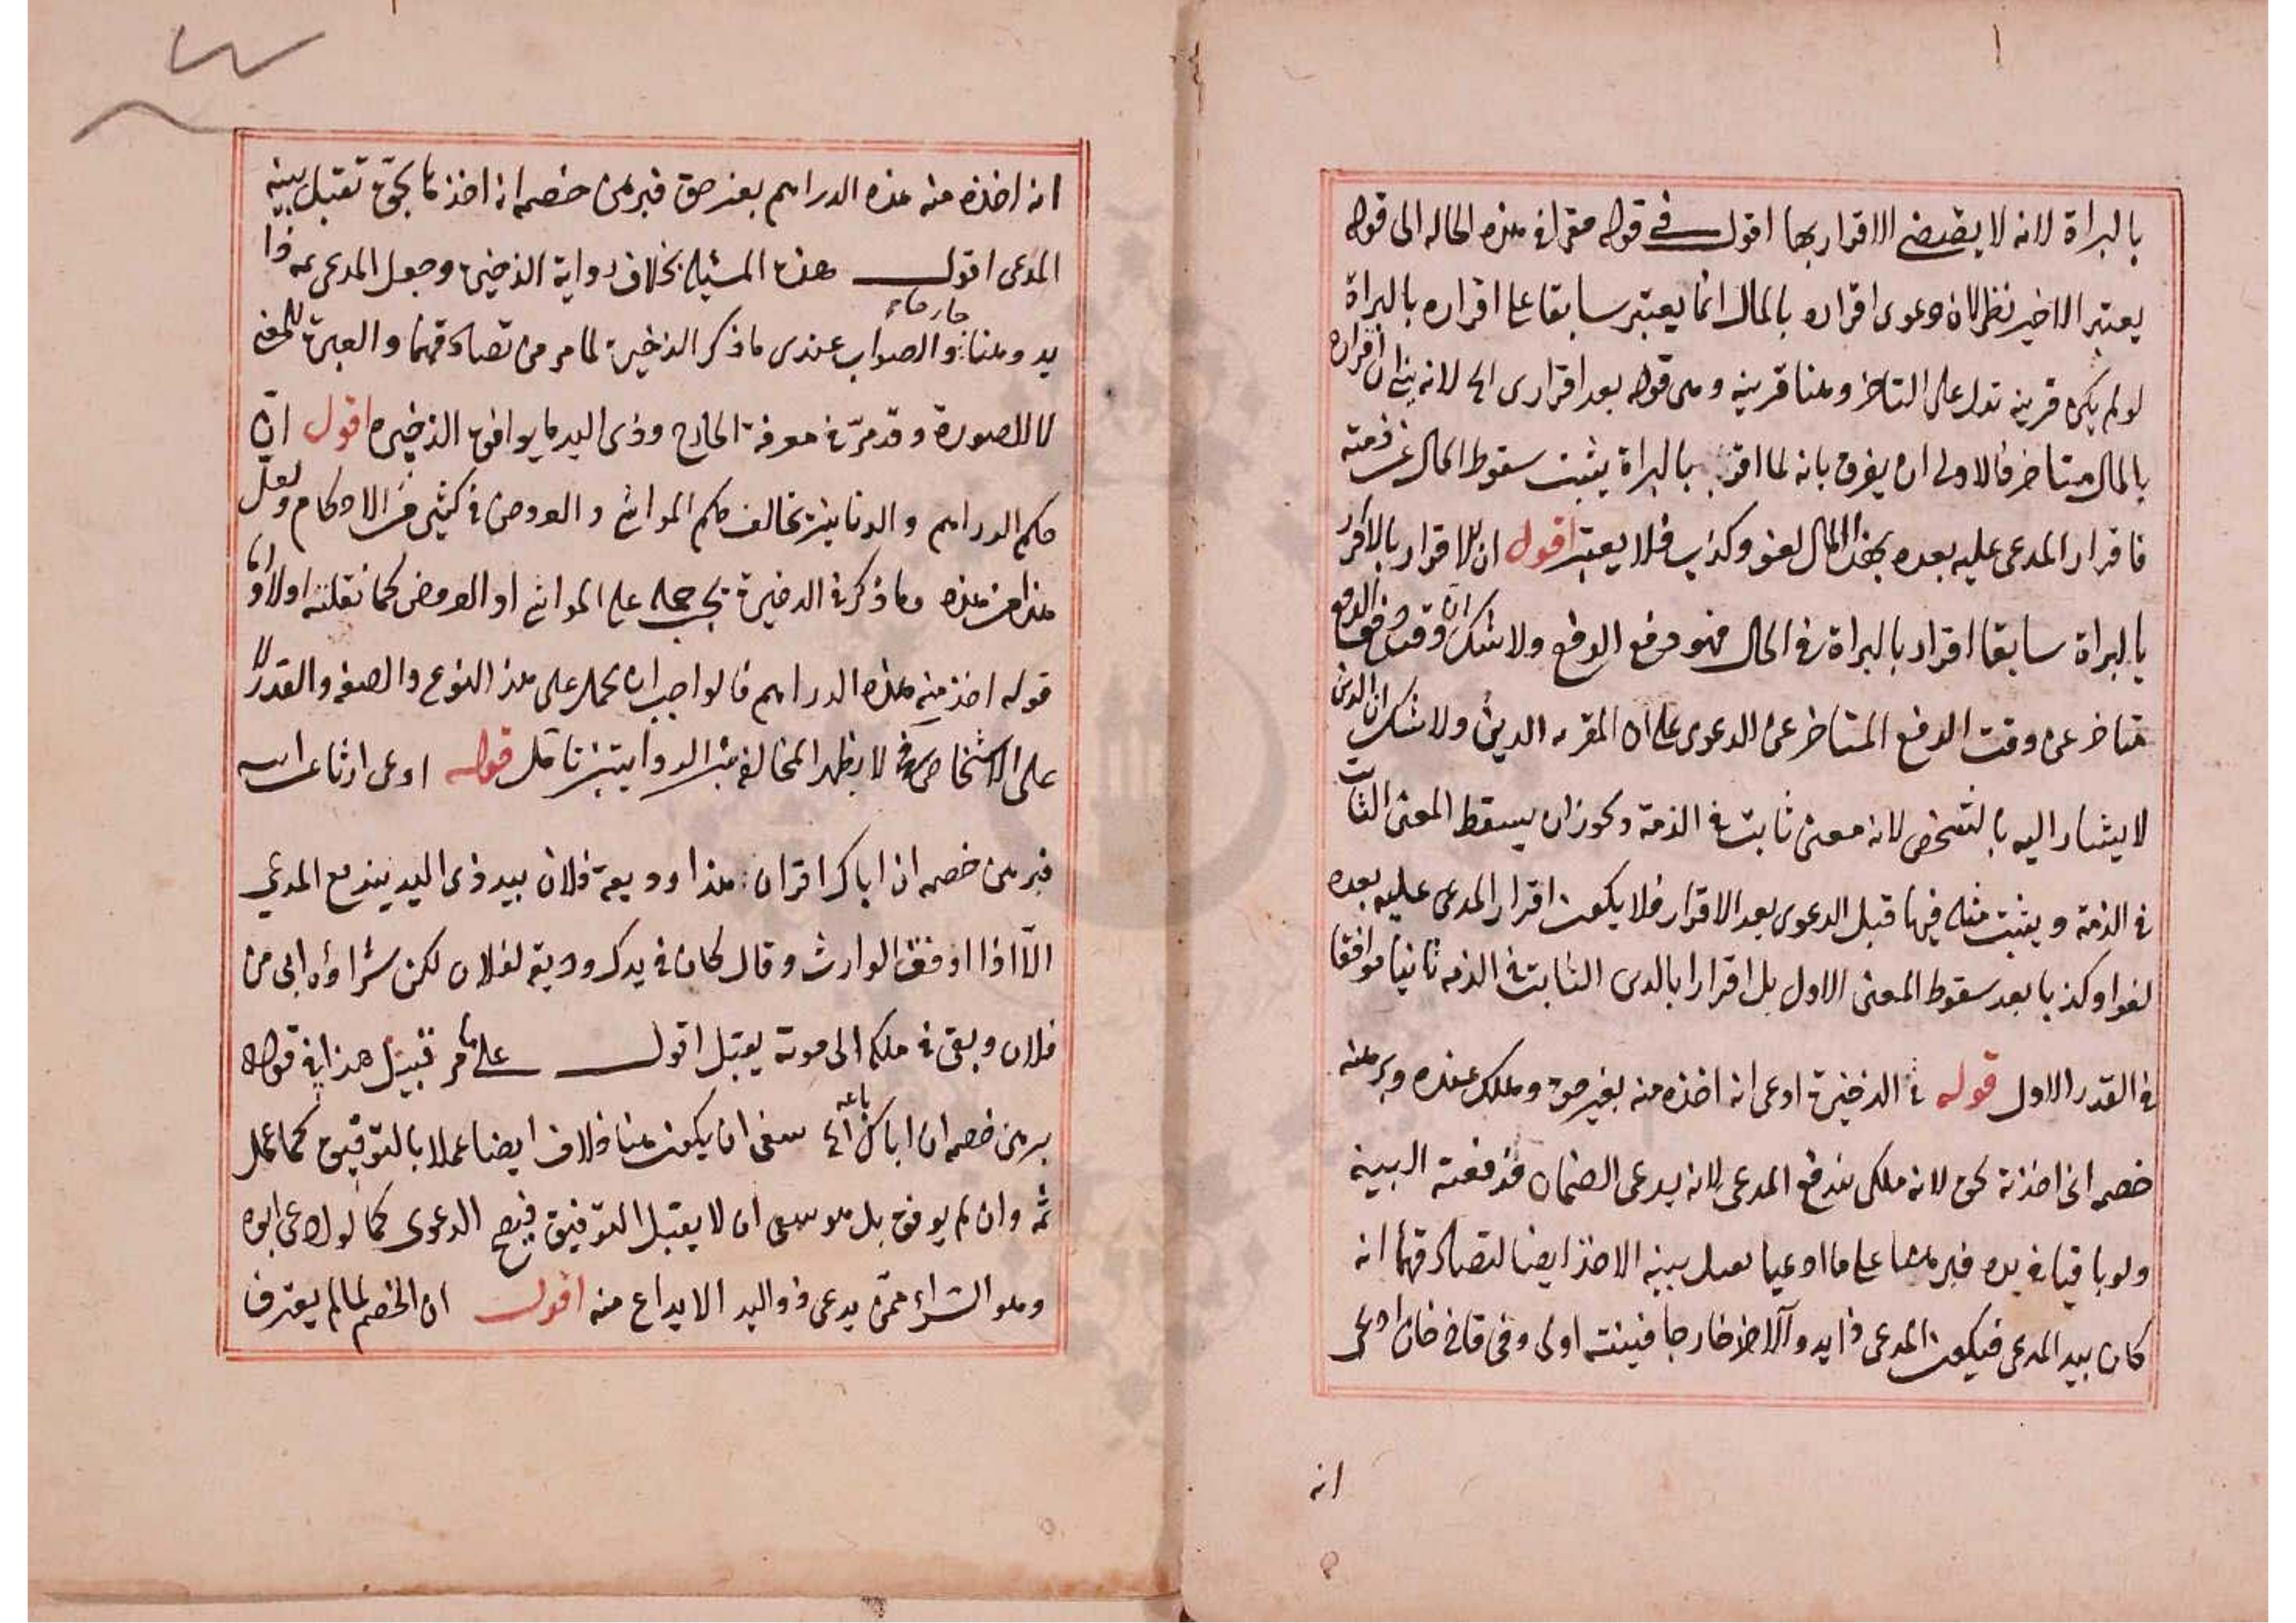 بالبراة لانه لا يقتضي الاقرار بها اقول في قوله مقرا في هذه الحاله الى قوله
يعتبر الاخير نظر لان دعوى اقراره بالمال انما يعتبر سابقا على اقراره بالبراة
لو لم يكن قرينه تدل على التاخر وهنا قرينه وهى قوله بعد اقرارى الخ لانه ان اقراره
بالمال متاخر فالاولى ان يفرق بانه لما اقر بالبراة يثبت سقوط المال عن ذمته
فاقرار المدعى عليه بعده بهذا المال لغو وكذب فلا يعتبر اقول ان الاقرار
بالبراة سابقا اقرار بالبراة فى الحال فهو دفع الدفع ولا شك ان وقت دفع الدفع
متاخر عن وقت الدفع المتاخر عن الدعوى على ان المقر به الدين ولا شك ان الدين
لا يشار اليه بالتشخص لانه معنى ثابت فى الذمة ويجوز ان يسقط المعنى الثابت
فى الذمة ويثبت مثله فيها قبل الدعوى بعد الاقرار فلا يكون اقرار المدعى عليه بعده
لغوا وكذبا بعد سقوط المعنى الاول بل اقرارا بالدين الثابت فى الذمه ثانيا موافقا
فى القدر الاول قوله فى الذخيرة ادعى انه اخذه منه بغير حق وهلك عنده وبرهنه
خصمه انى اخذته بحق لانه ملكى يندفع المدعى لانه يدعى الضمان فدفعته البينة
ولو باقيا فى يده فبرهنا على ما ادعيا تقبل بينه الاخذ ايضا لتصادقهما انه
كان بيد المدعى فيكون المدعى ذا يد والاخذ خارجا فبينته اولى وفى قاضى خان ادعى
انه
انه اخذه منه هذه الدراهم بغير حق فبرهن خصمه انه اخذها بحق تقبل بينه
المدعى اقول هذه المسئلة بخلاف رواية الذخيرة وجعل المدعى عه ذا
يد وهنا خارجا والصواب عندى ما ذكر الذخيرة لما مر من تصادقهما والعبرة للمعنى
لا للصورة وقد مرّ فى معرفة الخارج وذى اليد ما يوافق الذخيره اقول انّ
حكم الدراهم والدنانير تخالف حكم المواشى والعروض فى كثير من الاحكام ولعل
هذا من هذه وما ذكر فى الذخيرة يجب حمله على المواشى او العروض كما نقلته اولا واما
قوله اخذ منه هذه الدراهم فالواجب ان يحمل على هذا النوع والصفه والقدر لا
على الاشخاص فح لا يظهر المخالفة بين الروايتين تامل قوله ادعى ارثا عن ابيه
فبرهن خصمه ان اباك اقر ان هذا وديعة فلان بيد ذى اليد يندفع المدعى
الّا اذا وفق الوارث وقال كان فى يدك وديعة لفلان لكن شراؤه ابى من
فلان وبقى فى ملكه الى موته يقبل اقول على ما مر قبيل هذا فى قوله
برهن خصمه ان اباك باعه ينبغى ان يكون هنا خلاف ايضا عملا بالتوفيق كما عمل
ثمه وان لم يوفق بل هو ينبغى ان لا يقبل التوفيق فيصح الدعوى كما لو ادعى ابوه
وهو الشراء ممّن يدعى ذو اليد الايداع منه اقول ان الخصم لما لم يعترف